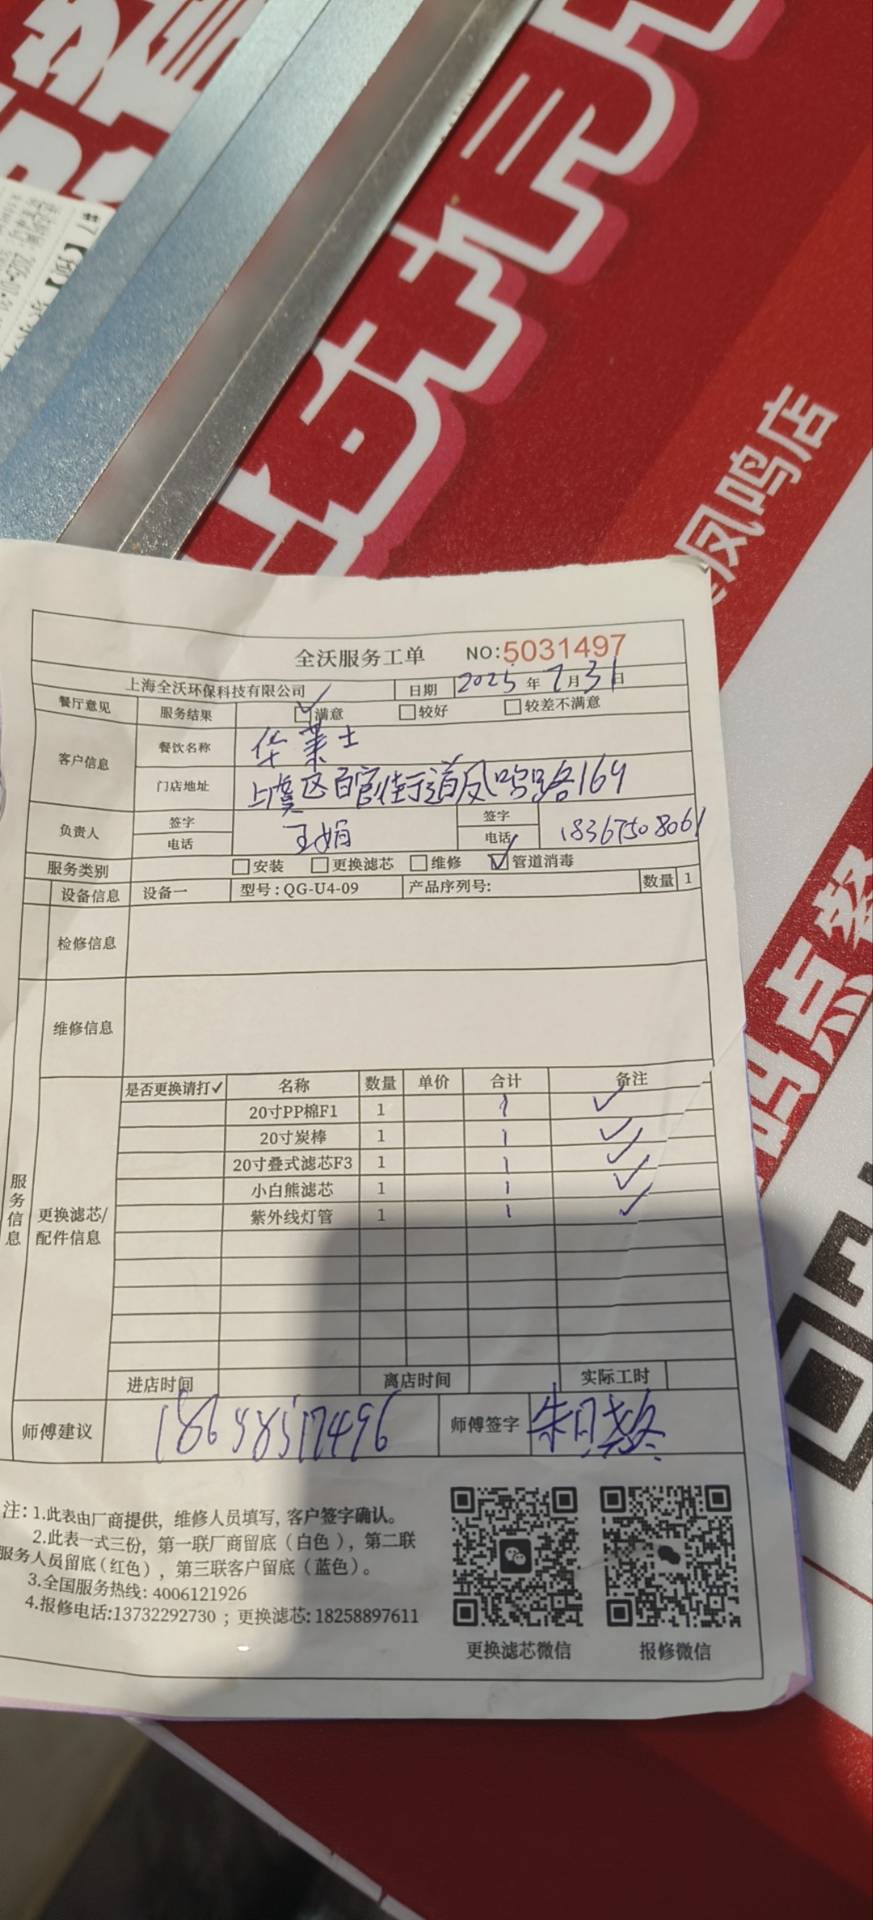 凤鸣店
码点餐
全沃服务工单 NO:5031497
上海全沃环保科技有限公司 日期 2025年7月31日
餐厅意见 服务结果 ☑满意 □较好 □较差不满意
客户信息 餐饮名称 华莱士
门店地址 上虞区百官街道凤鸣路169
负责人 签字 电话 王娟 签字 电话 18367508061
服务类别 □安装 □更换滤芯 □维修 ☑管道消毒
服务信息
设备信息 设备一 型号:QG-U4-09 产品序列号: 数量 1
检修信息
维修信息
更换滤芯/配件信息
是否更换请打✓ 名称 数量 单价 合计 备注
20寸PP棉F1 1 1 ✓
20寸炭棒 1 1 ✓
20寸叠式滤芯F3 1 1 ✓
小白熊滤芯 1 1 ✓
紫外线灯管 1 1 ✓
进店时间 离店时间 实际工时
师傅建议 18658517496 师傅签字
注:1.此表由厂商提供，维修人员填写，客户签字确认。
2.此表一式三份，第一联厂商留底（白色），第二联
服务人员留底（红色），第三联客户留底（蓝色）。
3.全国服务热线: 4006121926
4.报修电话:13732292730 ; 更换滤芯: 18258897611
更换滤芯微信 报修微信